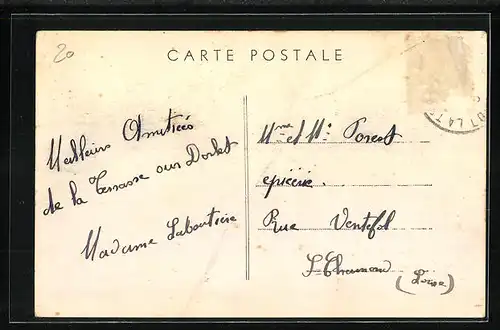 20
CARTE POSTALE
Meilleurs Amitiées
de la Terrasse sur Dorlet
Madame Laboutière
Mme et Mr Forest
epicerie.
Rue Ventefol
St Chamond
(Loire)